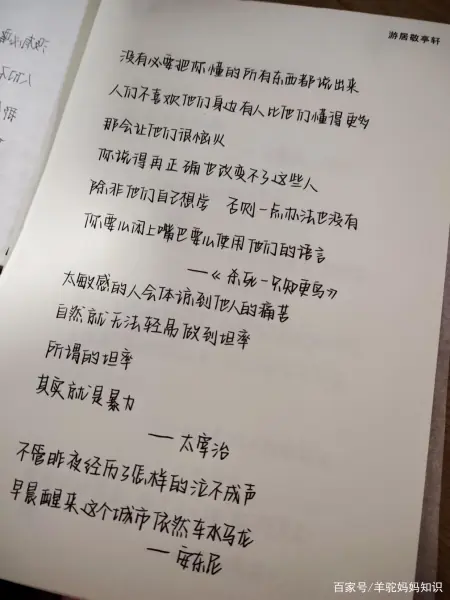 游居敬亭轩
没有必要把你懂的所有东西都说出来
人们不喜欢他们身边有人比他们懂得更多
那会让他们很恼火
你说得再正确也改变不了这些人
除非他们自己想学 否则一点办法也没有
你要么闭上嘴巴要么使用他们的语言
——《杀死一只知更鸟》
太敏感的人会体谅到他人的痛苦
自然就无法轻易做到坦率
所谓的坦率
其实就是暴力
——太宰治
不管昨夜经历了怎样的泣不成声
早晨醒来这个城市依然车水马龙
——安东尼
百家号/羊驼妈妈知识